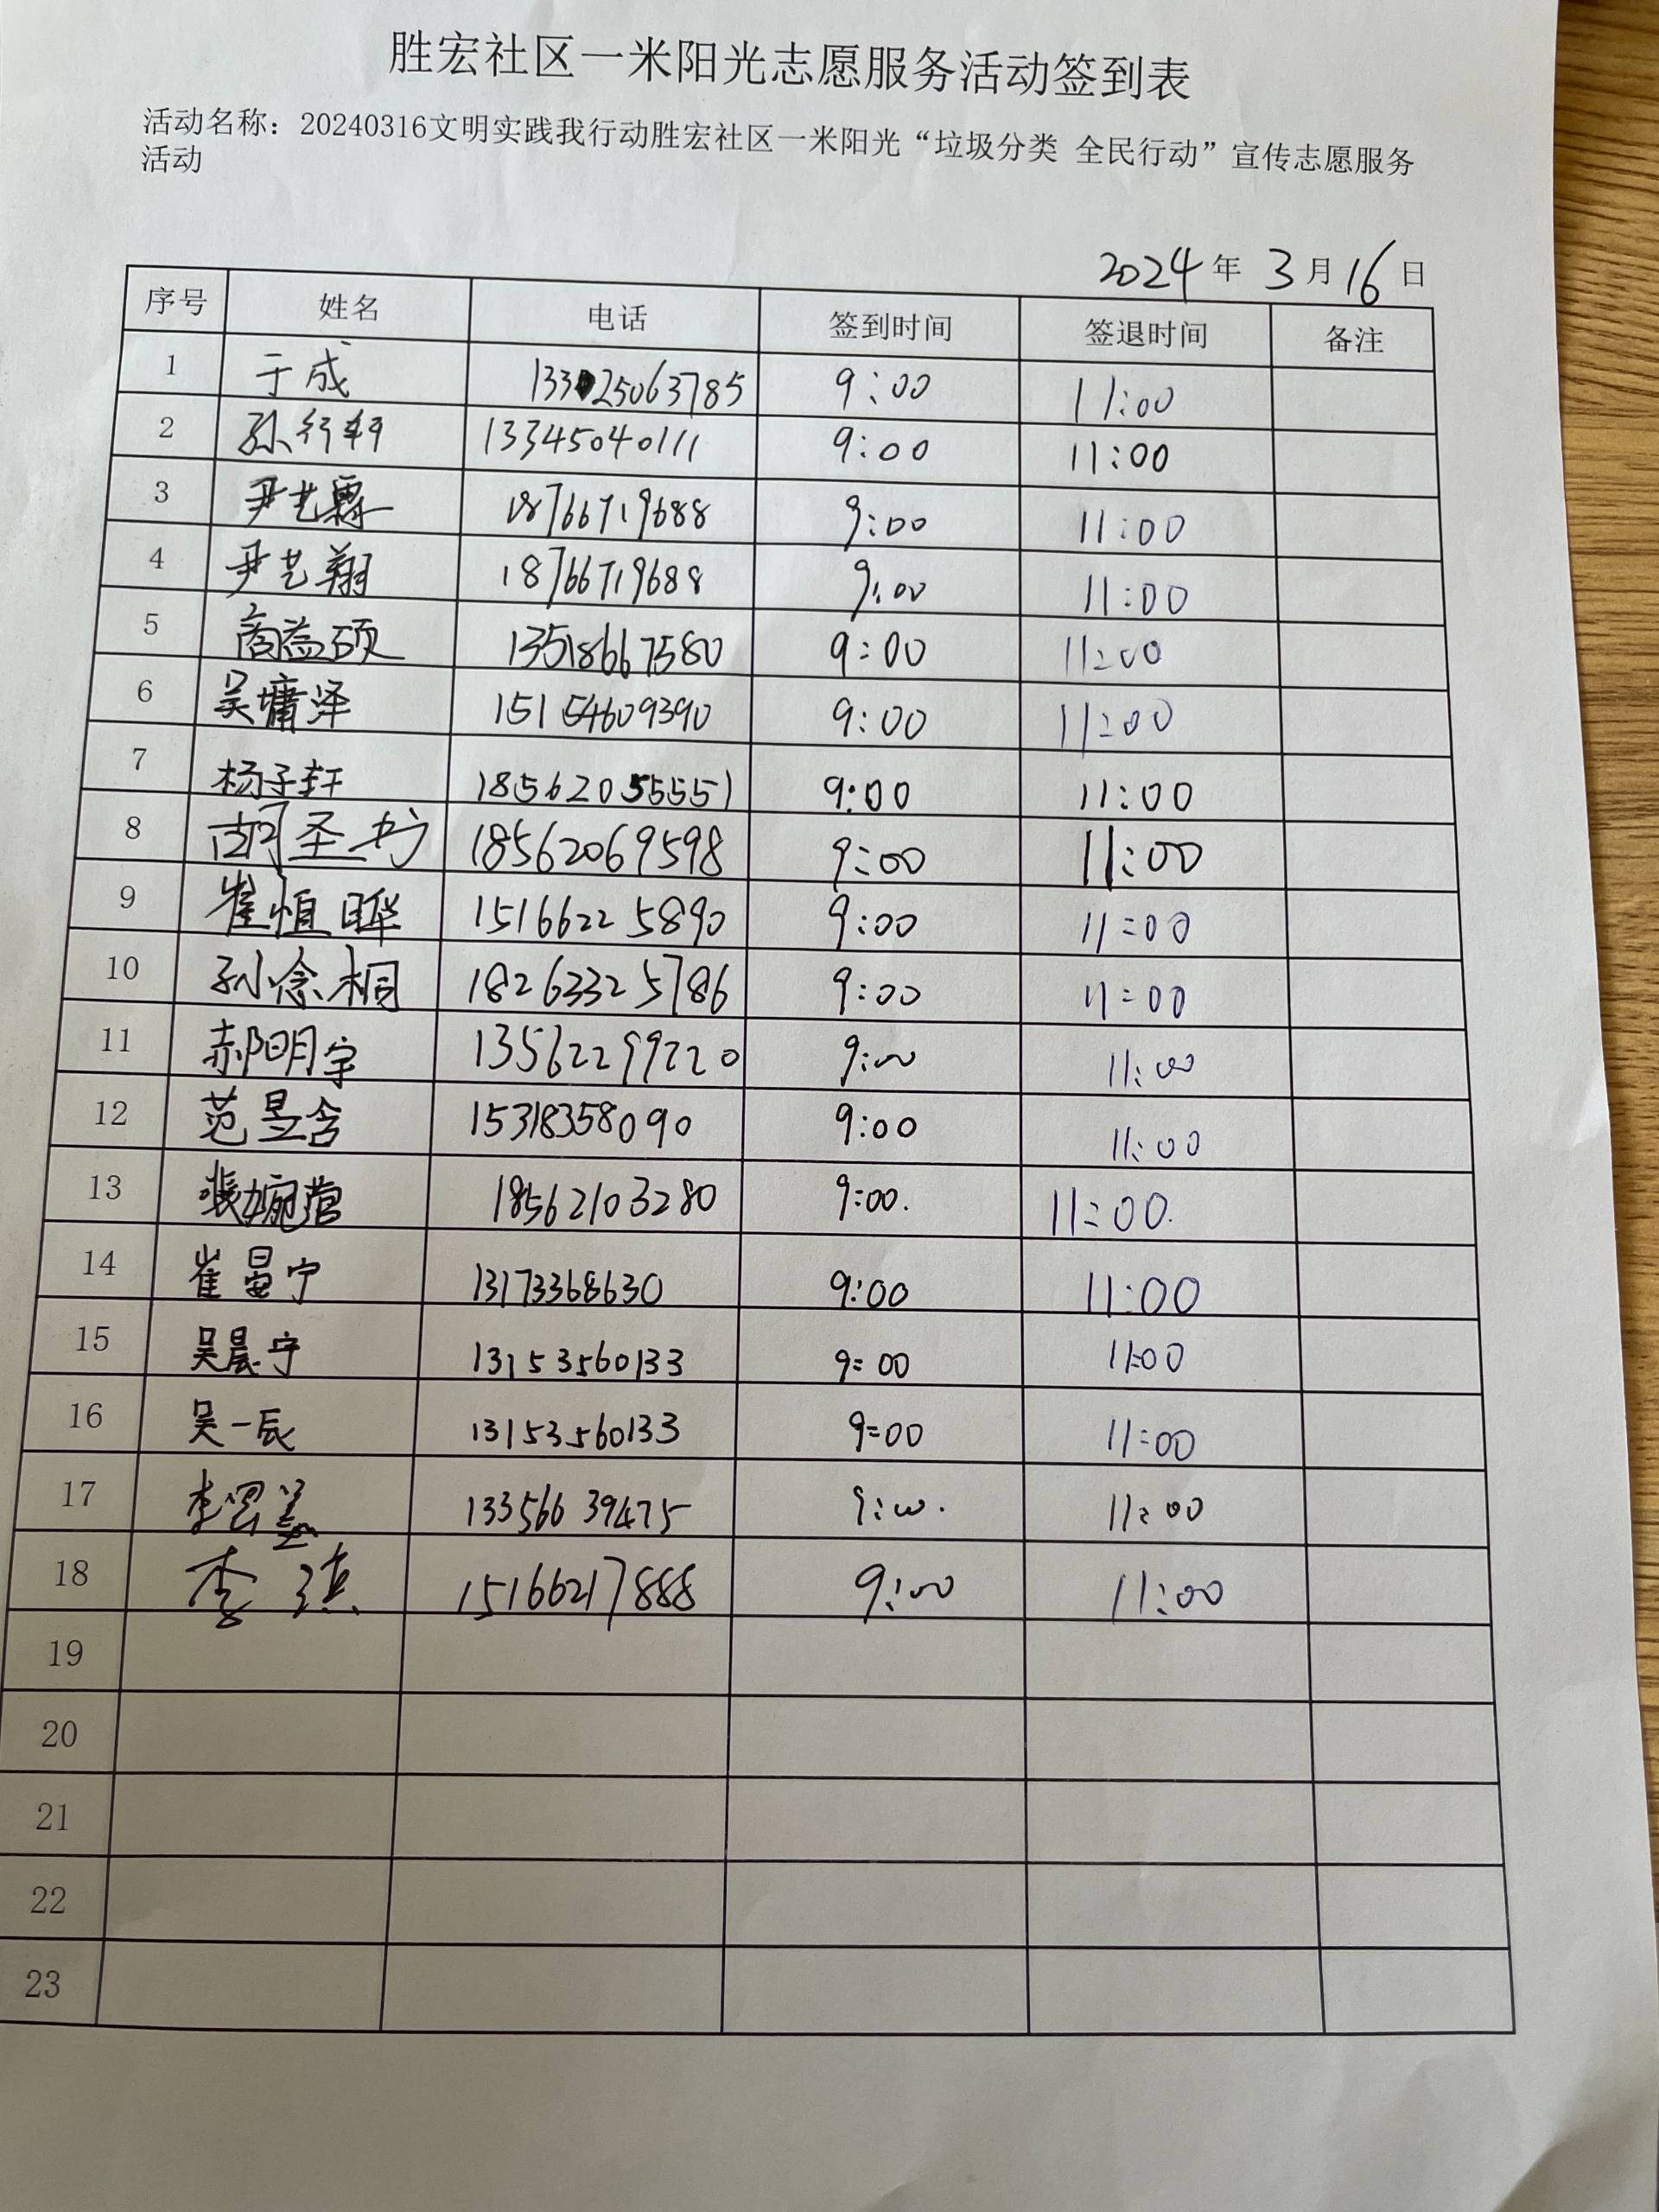 胜宏社区一米阳光志愿服务活动签到表
活动名称：20240316文明实践我行动胜宏社区一米阳光“垃圾分类 全民行动”宣传志愿服务
活动
2024年 3月16日
序号 姓名 电话 签到时间 签退时间 备注
1 于成 13325063785 9:00 11:00
2 孙行轩 13345040111 9:00 11:00
3 尹艺霖 18766719688 9:00 11:00
4 尹艺翔 18766719688 9:00 11:00
5 商益硕 13518667580 9:00 11:00
6 吴墉泽 15154609390 9:00 11:00
7 杨子轩 18562055551 9:00 11:00
8 胡圣 18562069598 9:00 11:00
9 崔恒晔 15166225890 9:00 11:00
10 孙念桐 18263325786 9:00 11:00
11 郝明宇 13562299220 9:00 11:00
12 范昱含 15318358090 9:00 11:00
13 裴婉莹 18562103280 9:00. 11:00.
14 崔晏宁 13173368630 9:00 11:00
15 吴晨宁 13153560133 9:00 11:00
16 吴一辰 13153560133 9:00 11:00
17 李 13356639475 9:00. 11:00
18 李 15166217888 9:00 11:00
19
20
21
22
23